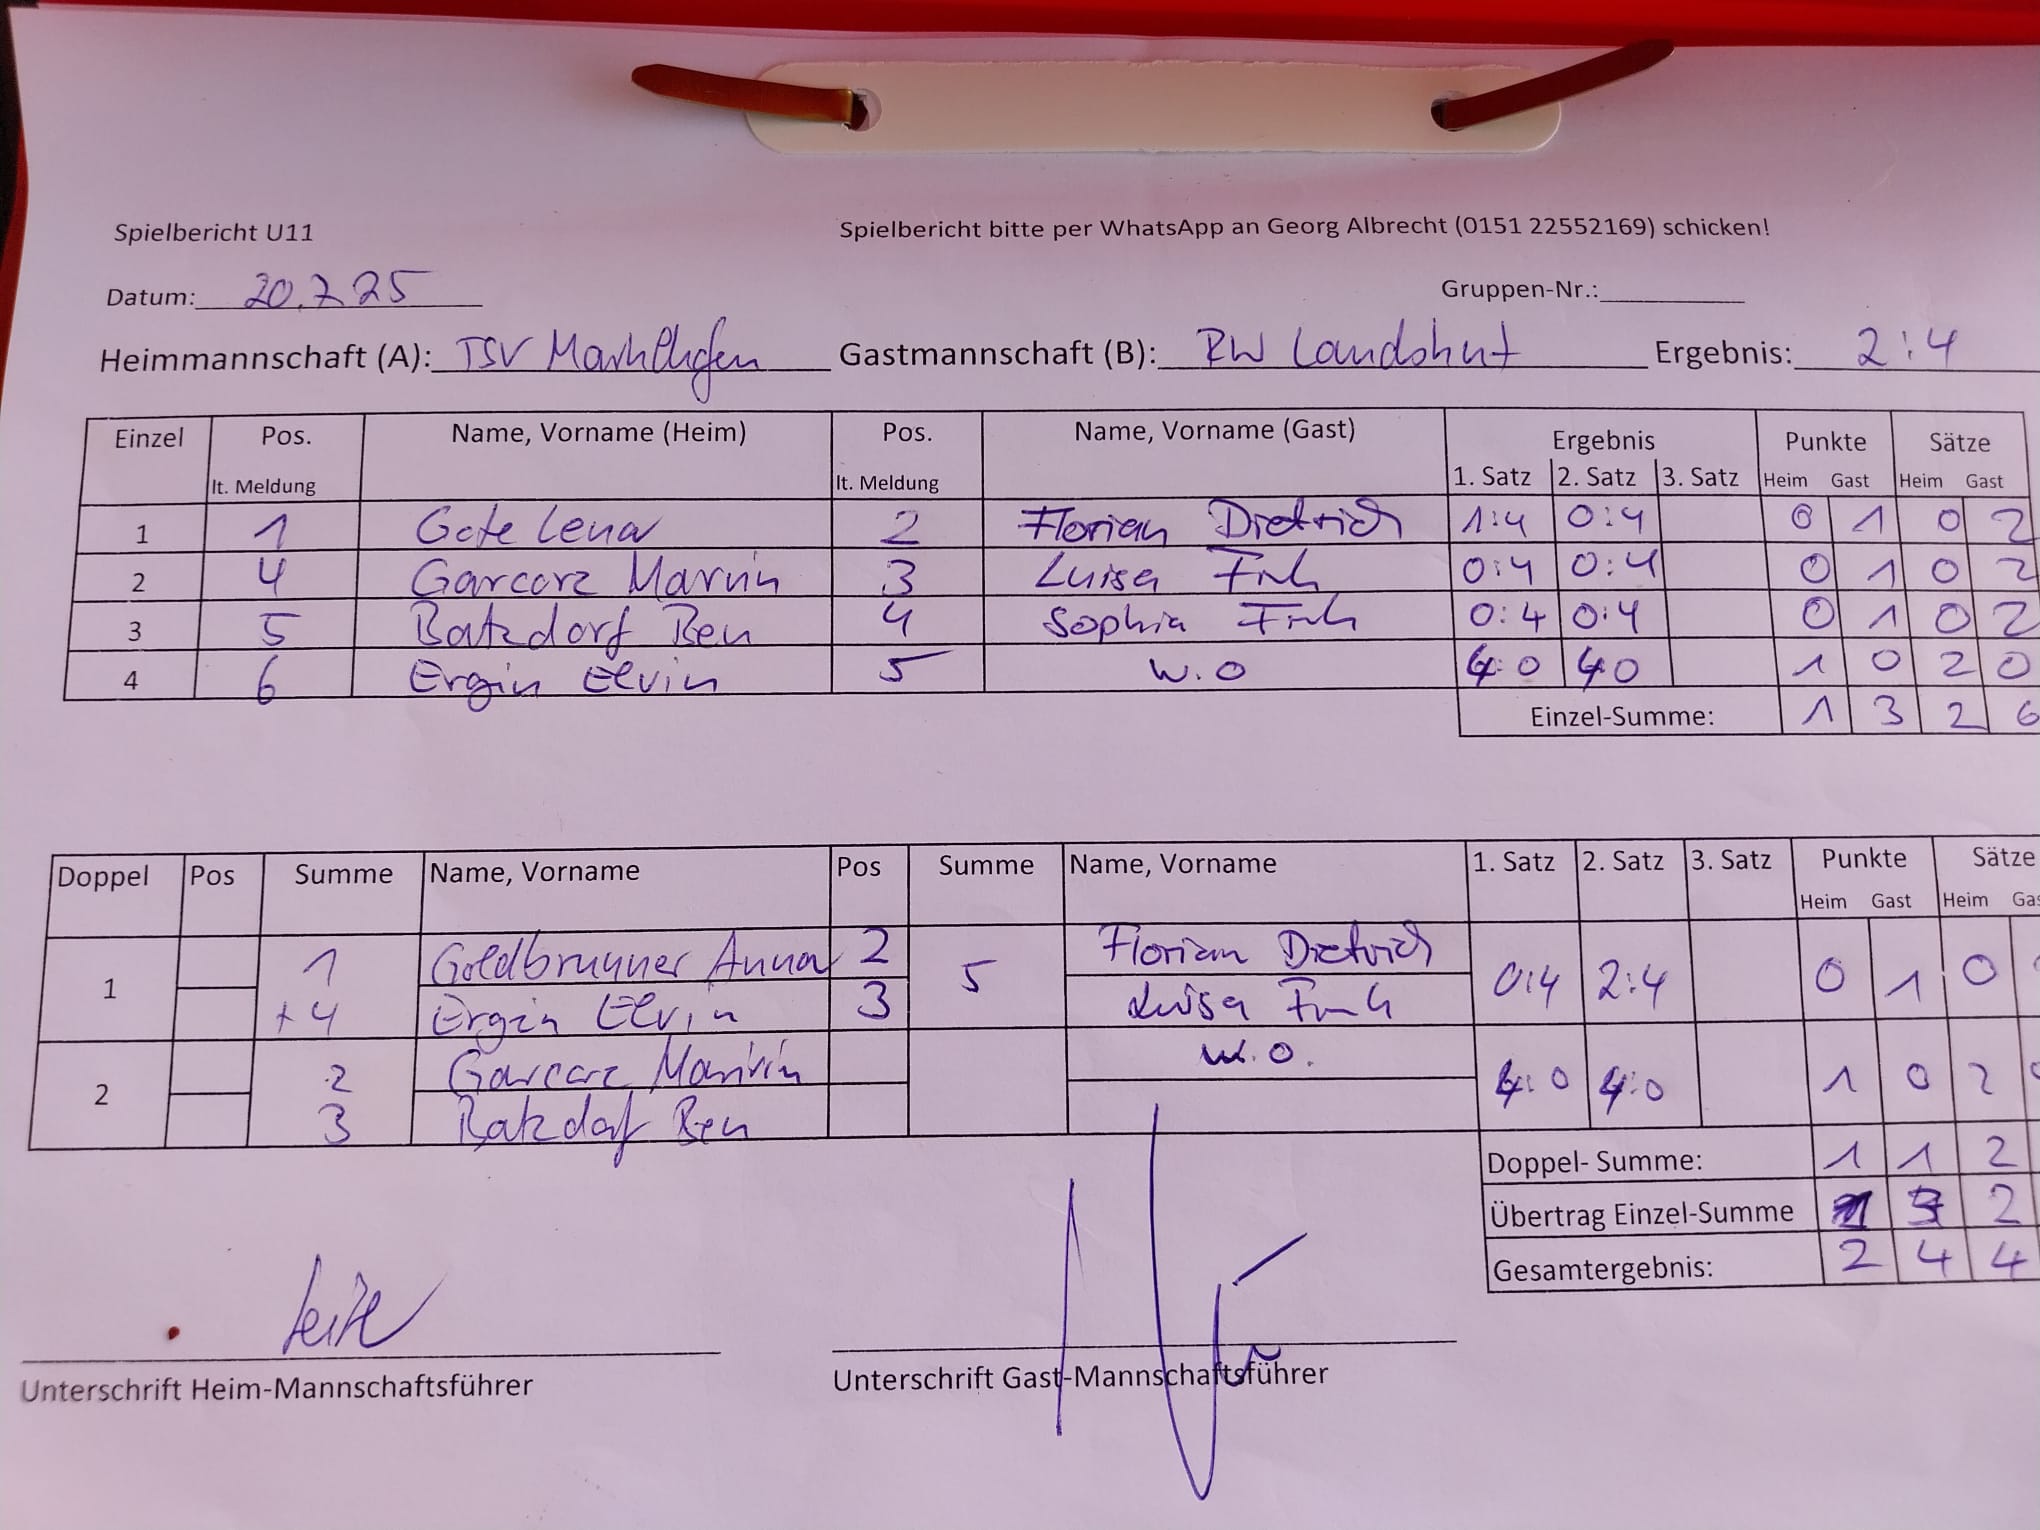 Spielbericht U11 Spielbericht bitte per WhatsApp an Georg Albrecht (0151 22552169) schicken!
Datum: 20.7.25 Gruppen-Nr.:
Heimmannschaft (A): TSV Gastmannschaft (B): RW Landshut Ergebnis: 2:4
Einzel Pos. Name, Vorname (Heim) Pos. Name, Vorname (Gast) Ergebnis Punkte Sätze
lt. Meldung lt. Meldung 1. Satz 2. Satz 3. Satz Heim Gast Heim Gast
1 1 Lena 2 Florian Dietrich 1:4 0:4 0 1 0 2
2 4 Garcorz Marvin 3 Luisa 0:4 0:4 0 1 0 2
3 5 Batzdorf Ben 4 Sophia 0:4 0:4 0 1 0 2
4 6 Ergin Elvin 5 w.o 4:0 4:0 1 0 2 0
Einzel-Summe: 1 3 2 6
Doppel Pos Summe Name, Vorname Pos Summe Name, Vorname 1. Satz 2. Satz 3. Satz Punkte Sätze
Heim Gast Heim
1 1 Goldbrunner Anna 2 5 Florian Dietrich 0:4 2:4 0 1 0
+4 Ergin Elvin 3 Luisa
2 2 Garcarz Marvin w.o. 4:0 4:0 1 0 2
3 Batzdorf Ben
Doppel- Summe: 1 1 2
Übertrag Einzel-Summe 1 3 2
Gesamtergebnis: 2 4 4
Unterschrift Heim-Mannschaftsführer Unterschrift Gast-Mannschaftsführer